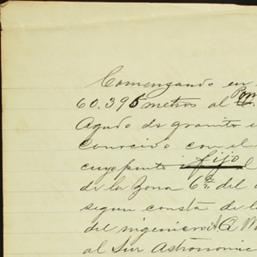 Comenzando en
60.395 metros al
Agudo de granito
conocido con el
cuyo punto fijo
de la Zona 6a. del
segun consta de l
del ingeniero A
al Sur Astronomic